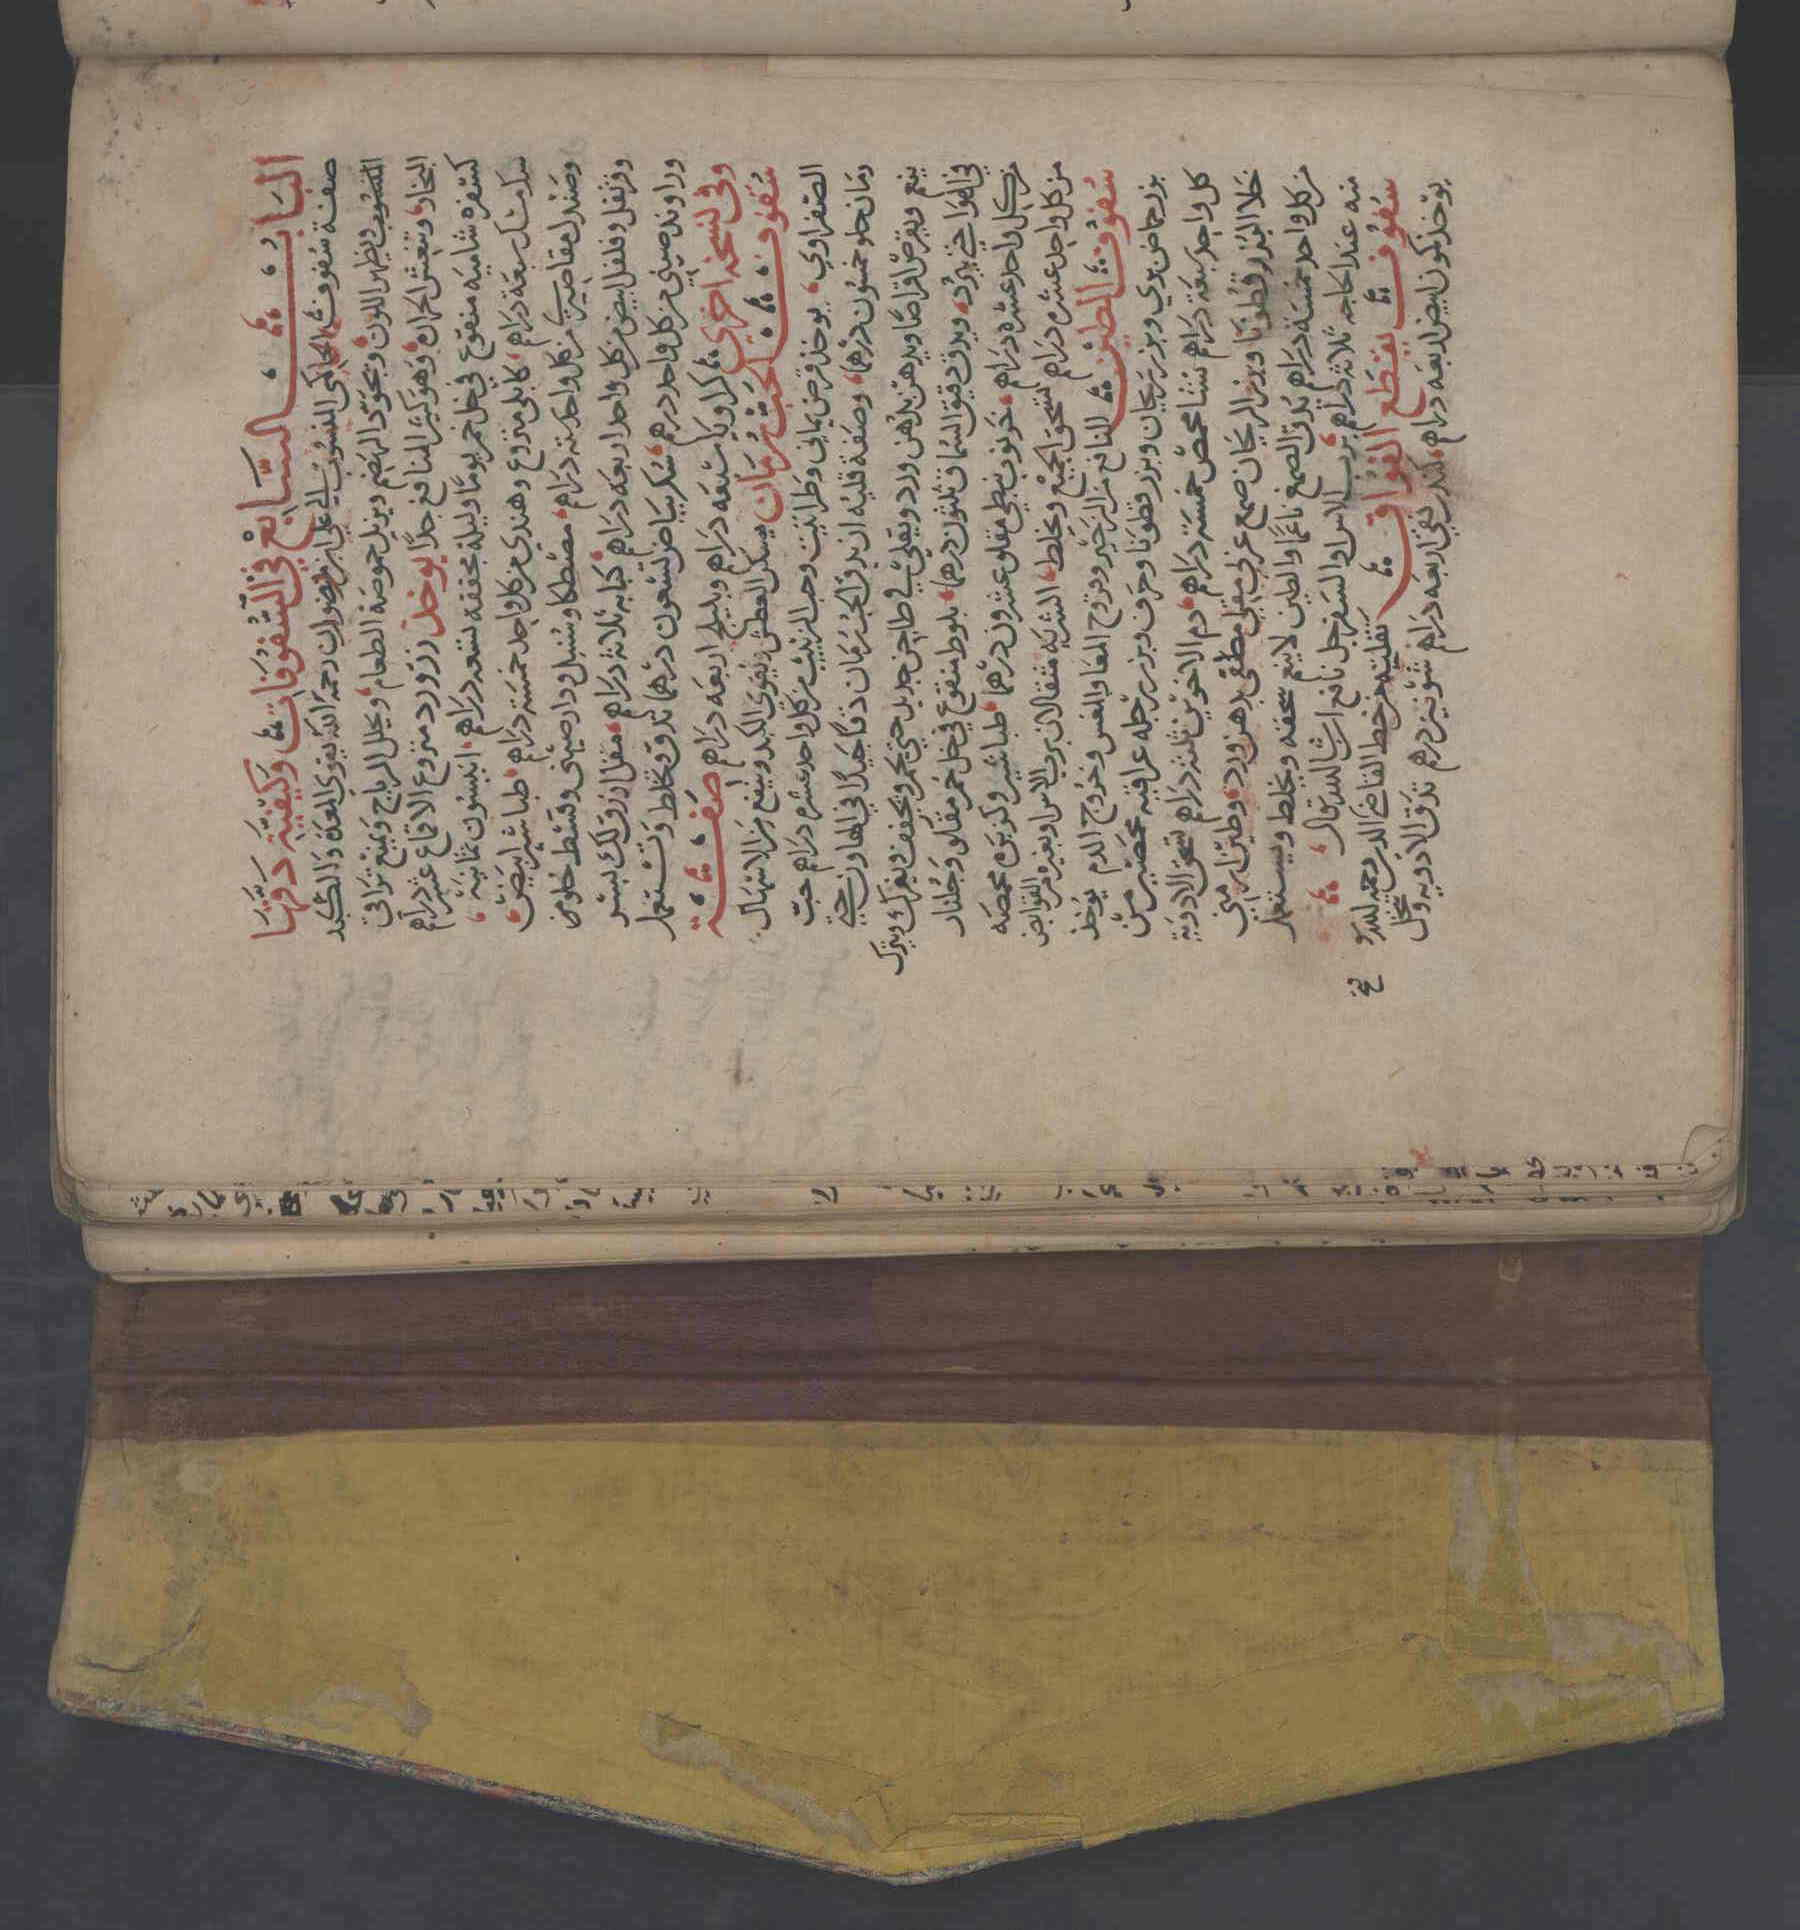 الباب السابع في السفوفات وكيفية دقها
صفة سفوف الحاكي المنسوب الي علي بن رضوان رحمه الله يقوي المعدة والكبد
ويظهر اللون ويجود الهضم ويزيل حموضة الطعام ويحلل الرياح ويمنع تراقي
البخار وينعش الحرارة وهو كثير المنافع جدا يوخذ زرورد منزوع الاقماع عشر دراهم
كسفره شاميه منقوع في خل خمر يوما وليلة مجففه تسعه دراهم انيسون ثمانية
سك مسك سبعة دراهم كابلي منزوع وهندي من كل واحد خمسة دراهم طباشير ابيض
وصندل مقاصيري من كل واحد سته دراهم مصطكا وسنبل ودارصيني وقسط حلو من
وقرنفل وفلفل ابيض من كل واحد اربعه دراهم كبابه ثلاثه دراهم مقل ازرق لك بسر
وراوند صيني من كل واحد درهم سكر بياض تسعون درهما تدق وتخلط وتستعمل
وفي نسخه اخري كراويا تسعه دراهم وبليلج اربعه دراهم صفة
سفوف الحب رمان يسكن العطش ويقوي الكبد وينفع من الاسهال
الصفراوي يوخذ قرض يماني وطراثيث وحب الزبيب من كل واحد عشره دراهم حب
رمان حلو خمسون درهما وصفة قليه ان يدق الحب رمان دقا جيدا في الهاون حتي
ينعم ويقرص اقراصا ويدهن بدهن ورد ويقلي في طاجن حديد حتي يحمر ويجفف ويفرك ويترك
في الهوا حتي يبرد ويدق دقيق السماق ثلثون درهما بلوط منقوع في خل خمر مقلو وجلنار
من كل واحد عشره دراهم خرنوب نبطي مقلو عشرون درهما طباشير وكزبره محمصه
من كل واحد عشره دراهم تسحق الجميع ويخلط الشربه مثقالان برب الاس او بغيره من القوابض
سفوف الطين النافع من الزحير وقروح المعا والمغس وخروج الدم يوخذ
بزر حماض بري وبزر ريحان وبزر قطونا وحرف وبزر رجله عراقيه محمصين من
كل واحد سبعة دراهم نشا محمص خمسة دراهم دم الاخوين ثلثه دراهم تسحق الادوية
خلا البزر قطونا وبزر الريحان صمغ عربي مقلي مطفي بدهن ورد وطين ارمني
من كل واحد خمسة دراهم يدق الصمغ ناعما والطين لا ينعم سحقه ويخلط ويستعمل
منه عند الحاجه ثلاثه دراهم برب الاس او السفرجل نافع ان شا الله تعالى
سفوف يقطع الفواق نقلته من خط القاضي
يوخذ كمون ابيض اربعه دراهم كندر نقي اربعه دراهم شونيز درهم تدق الادويه وتنخل